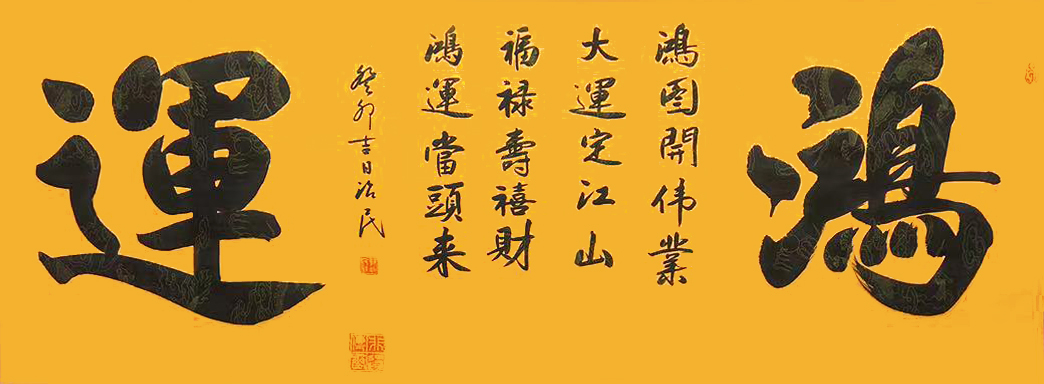 鴻
鴻图開伟業
大運定江山
福禄壽禧財
鴻運當頭来
癸卯吉日治民
運